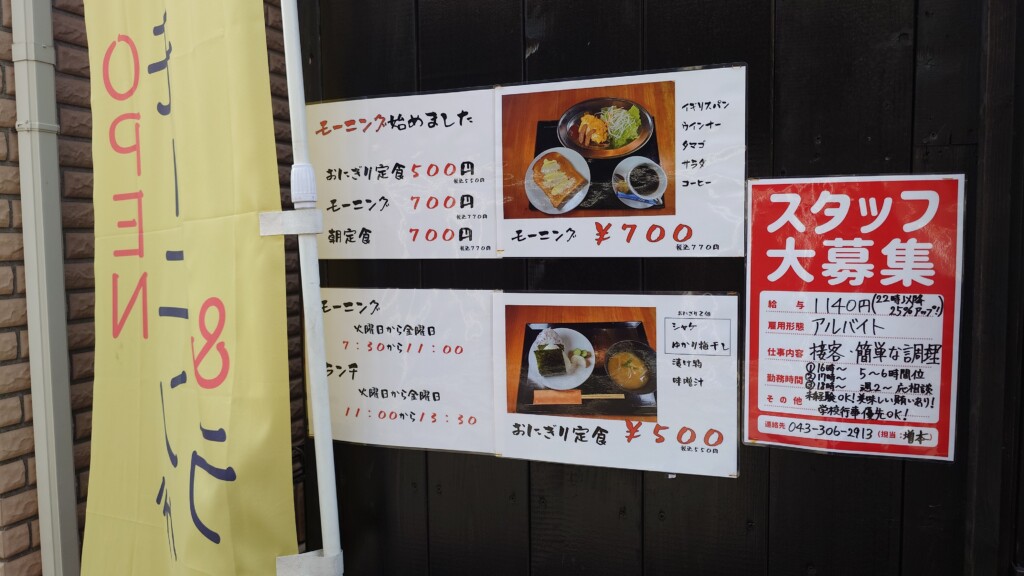 OPEN
&
モーニング始めました
おにぎり定食 500円
税込550円
モーニング 700円
税込770円
朝定食 700円
税込770円
イギリスパン
ウインナー
タマゴ
サラダ
コーヒー
モーニング ¥700
税込770円
モーニング
火曜日から金曜日
7:30から11:00
ランチ
火曜日から金曜日
11:00から13:30
おにぎり2個
シャケ
ゆかり梅干し
漬け物
味噌汁
おにぎり定食 ¥500
税込550円
スタッフ
大募集
給与 1140円(22時以降25%アップ!)
雇用形態 アルバイト
仕事内容 接客・簡単な調理
勤務時間 ①16時~ ②17時~ ③18時~ 5~6時間位 週2~応相談
その他 未経験OK!美味しい賄いあり!
学校行事優先OK!
連絡先 043-306-2913(担当:増本)